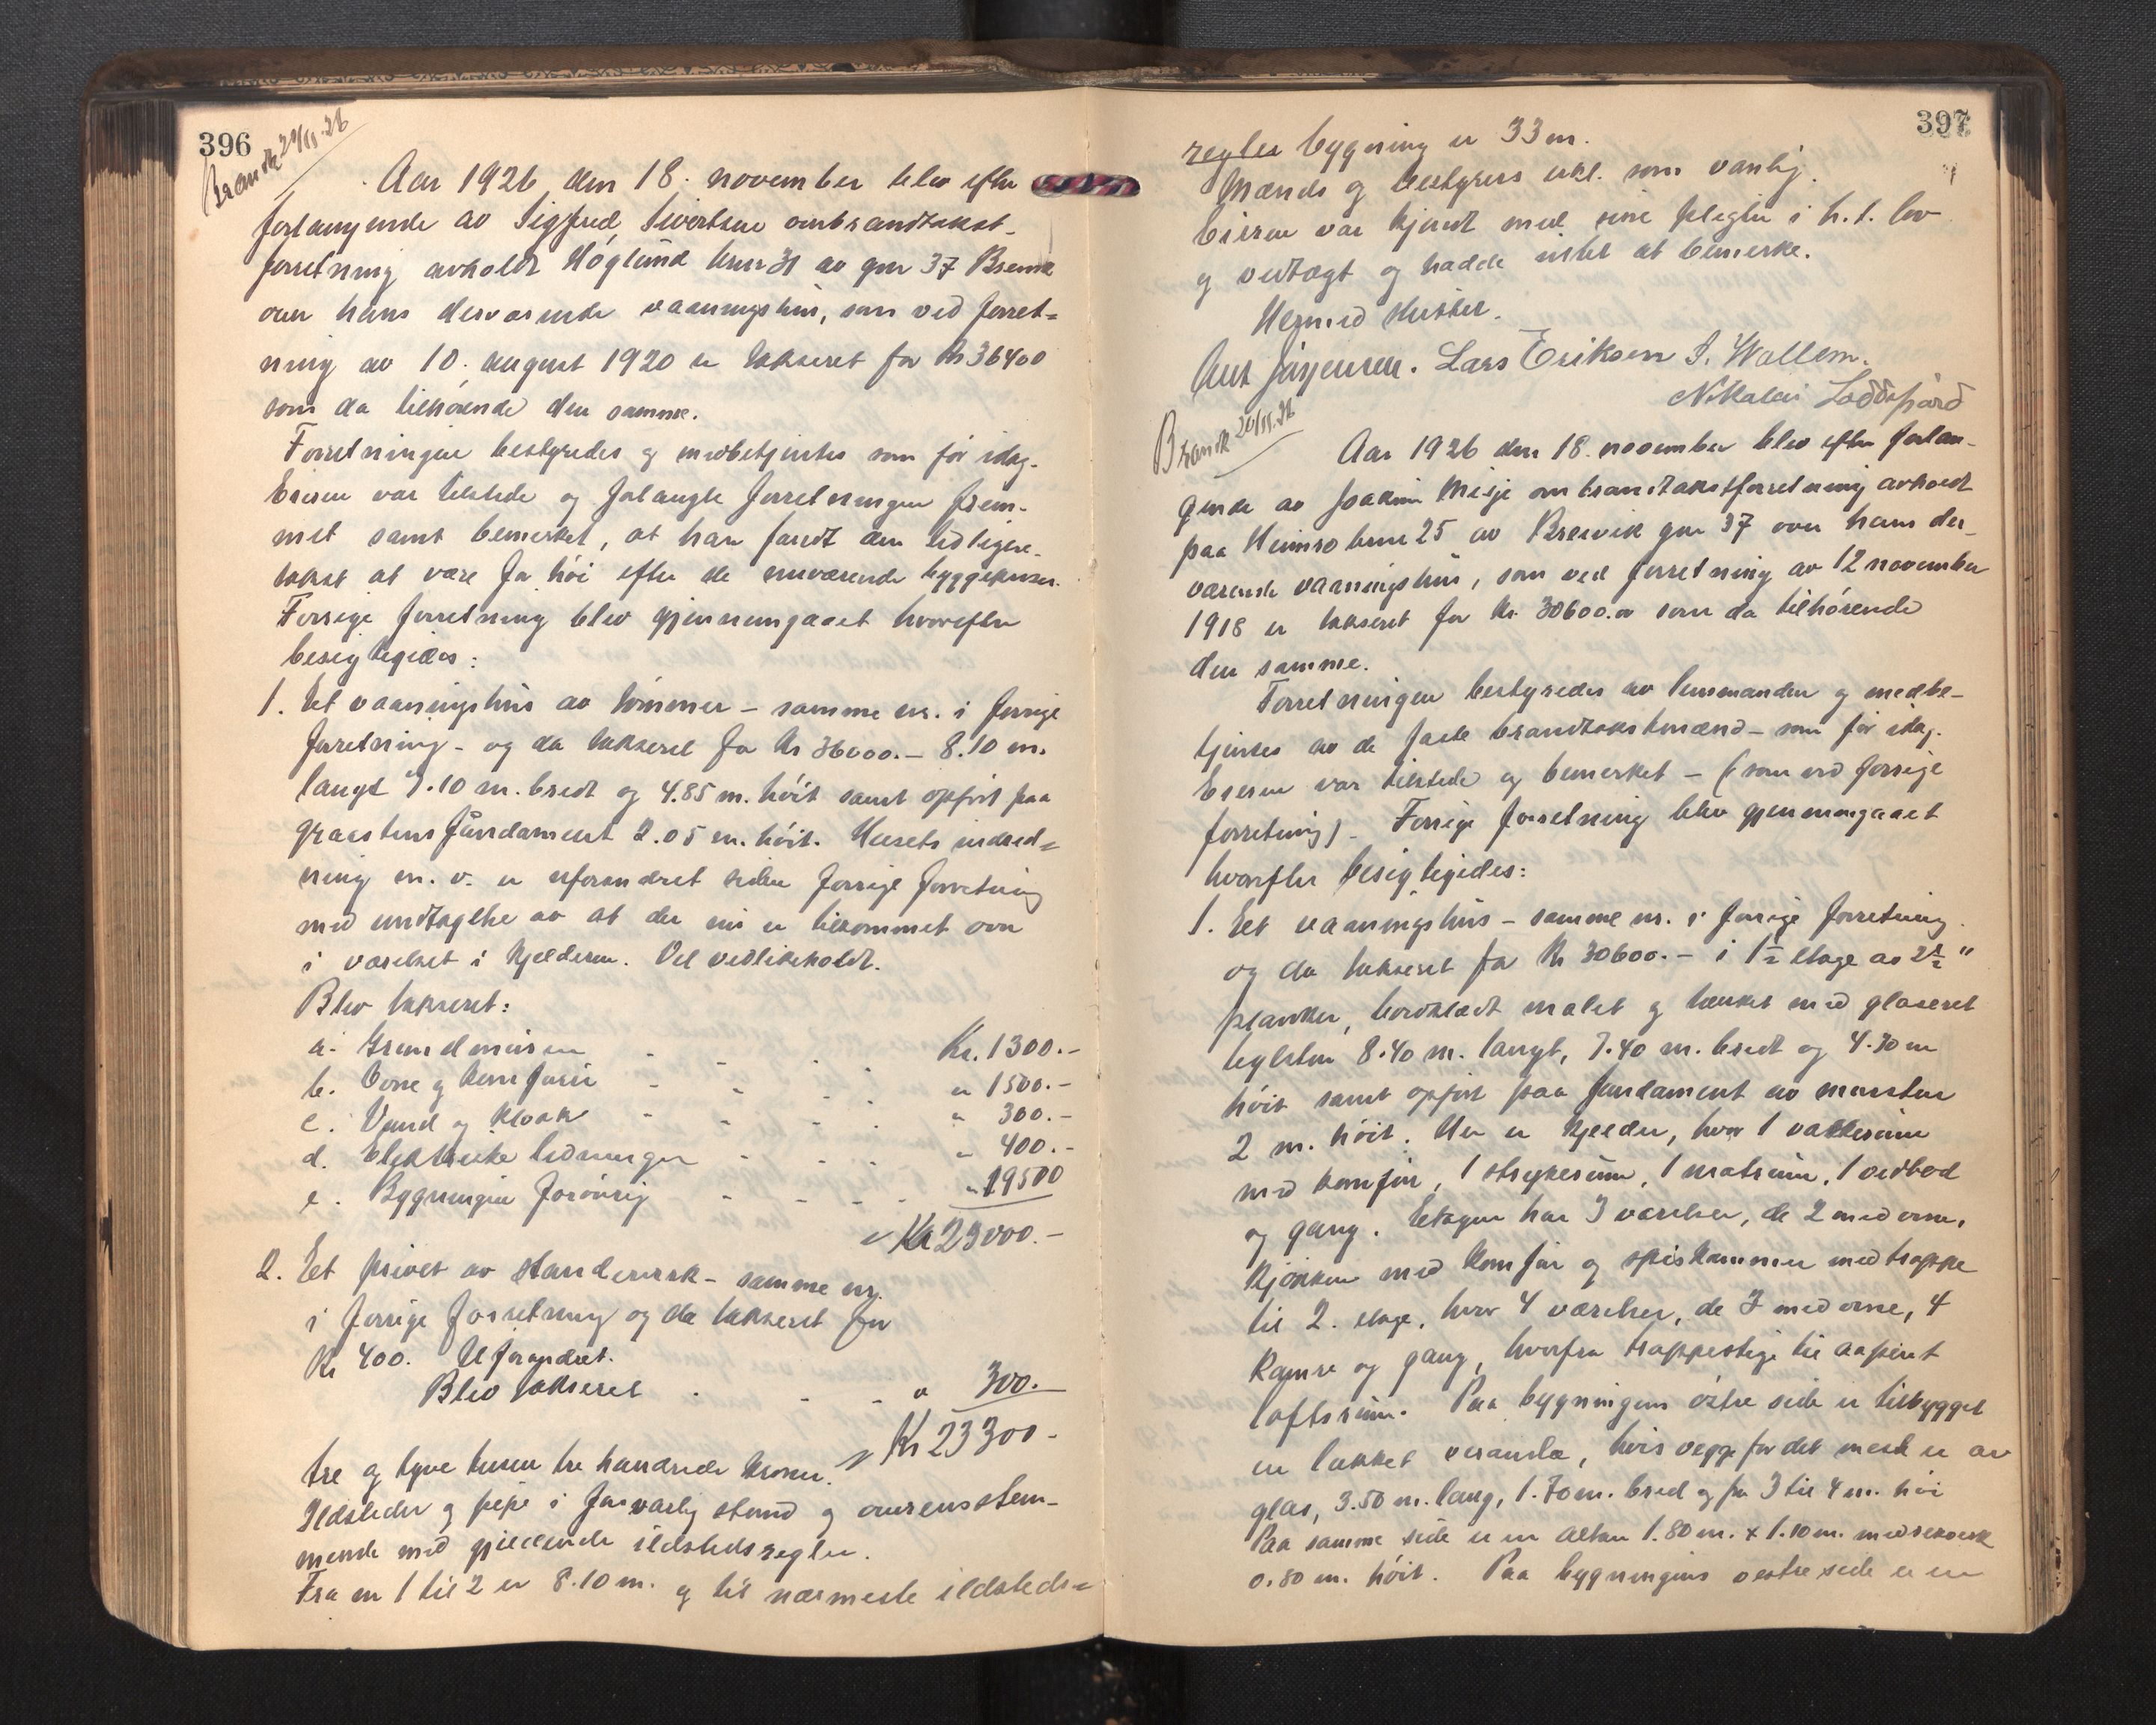 396
Aar 1926 den 18. november blev efter
forlangende av Sigfred Sivertsen ombrandtakst-
forretning avholdt Høglund brnr 31 av gnr 37
over hans derværende vaaningshus, som ved forret-
ning av 10. august 1920 er takseret for Kr 36400
som da tilhørende den samme.
Forretningen bestyredes og medbetjentes som før idag.
Eieren var tilstede og forlangte forretningen frem-
met samt bemerket, at han fandt den tidligere
takst at være for høi efter de nuværende byggepriser.
Forrige forretning blev gjennemgaaet hvorefter
besigtigedes:
1. Et vaaningshus av tømmer - samme nr. i forrige
forretning - og da takseret for Kr 36000.- 8.10 m.
langt 7.10 m. bredt og 4.85 m. høit samt opført paa
graastensfundament 2.05 m. høit. Husets indred=
ning m. v. er uforandret siden forrige forretning
med undtagelse av at der nu er tilkommet ovn
i værelset i kjelderen. Vel vedlikeholdt.
Blev takseret:
a. Grundmuren Kr. 1300.-
b. Ovne og komfurer " 1500.-
c. Vand og kloak " 300.-
d. Elektriske ledninger " 400.-
e. Bygningen forøvrig " 19500
Kr 23000.-
2. Et privet av standerverk - samme nr.
i forrige forretning og da takseret for
Kr 400. Uforandret.
Blev takseret " 300.-
Kr 23300-
tre og tyve tusen tre hundrede kroner.
Ildsteder og pipe i forsvarlig stand og overensstem-
mende med gjældende ildstedsregler.
Fra nr 1 til 2 er 8.10 m. og til nærmeste ildsteds=
397
regles bygning er 33 m.
Mænds og bestyrers erkl. som vanlig.
Eieren var kjendt med sine pligter i h. t. lov
og vedtægt og hadde intet at bemerke.
Hermed sluttet.
Jørgensen. Lars Eriksen J. Wallem.
Nikolai Loddefjord
Aar 1926 den 18. november blev efter forlan-
gende av Joakim Misje ombrandtakstforretning avholdt
paa Heimro brnr 25 av Breivik gnr 37 over hans der-
værende vaaningshus, som ved forretning av 12 november
1918 er takseret for Kr. 30600.00 som da tilhørende
den samme.
Forretningen bestyredes av lensmanden og medbe-
tjentes av de faste brandtakstmænd - som før idag.
Eieren var tilstede og bemerket - (som ved forrige
forretning). Forrige forretning blev gjennemgaaet
hvorefter besigtigedes:
1. Et vaaningshus - samme nr. i forrige forretning
og da takseret for Kr 30600.- i 1½ etage av 2½"
planker, bordklædt malet og tækket med glaseret
teglsten 8.40 m. langt, 7.40 m. bredt og 4.30 m
høit samt opført paa fundament av mursten
2 m. høit. Her er kjelder, hvor 1 vaskerum
med komfur, 1 strykerum, 1 matrum, 1 vedbod
og gang. Etagen har 3 værelser, de 2 med ovne,
kjøkken med komfur og spiskammer med trappe
til 2. etage, hvor 4 værelser, de 3 med ovne, 4
kamre og gang, hvorfra trappestige til aapent
loftsrum. Paa bygningens østre side er tilbygget
en lukket veranda, hvis vegge for det meste er av
glas, 3.50 m. lang, 1.70 m. bred og fra 3 til 4 m. høi
Paa samme side er en altan 1.80 m. x 1.10 m. med rekverk
0.80 m. høit. Paa bygningens vestre side er en